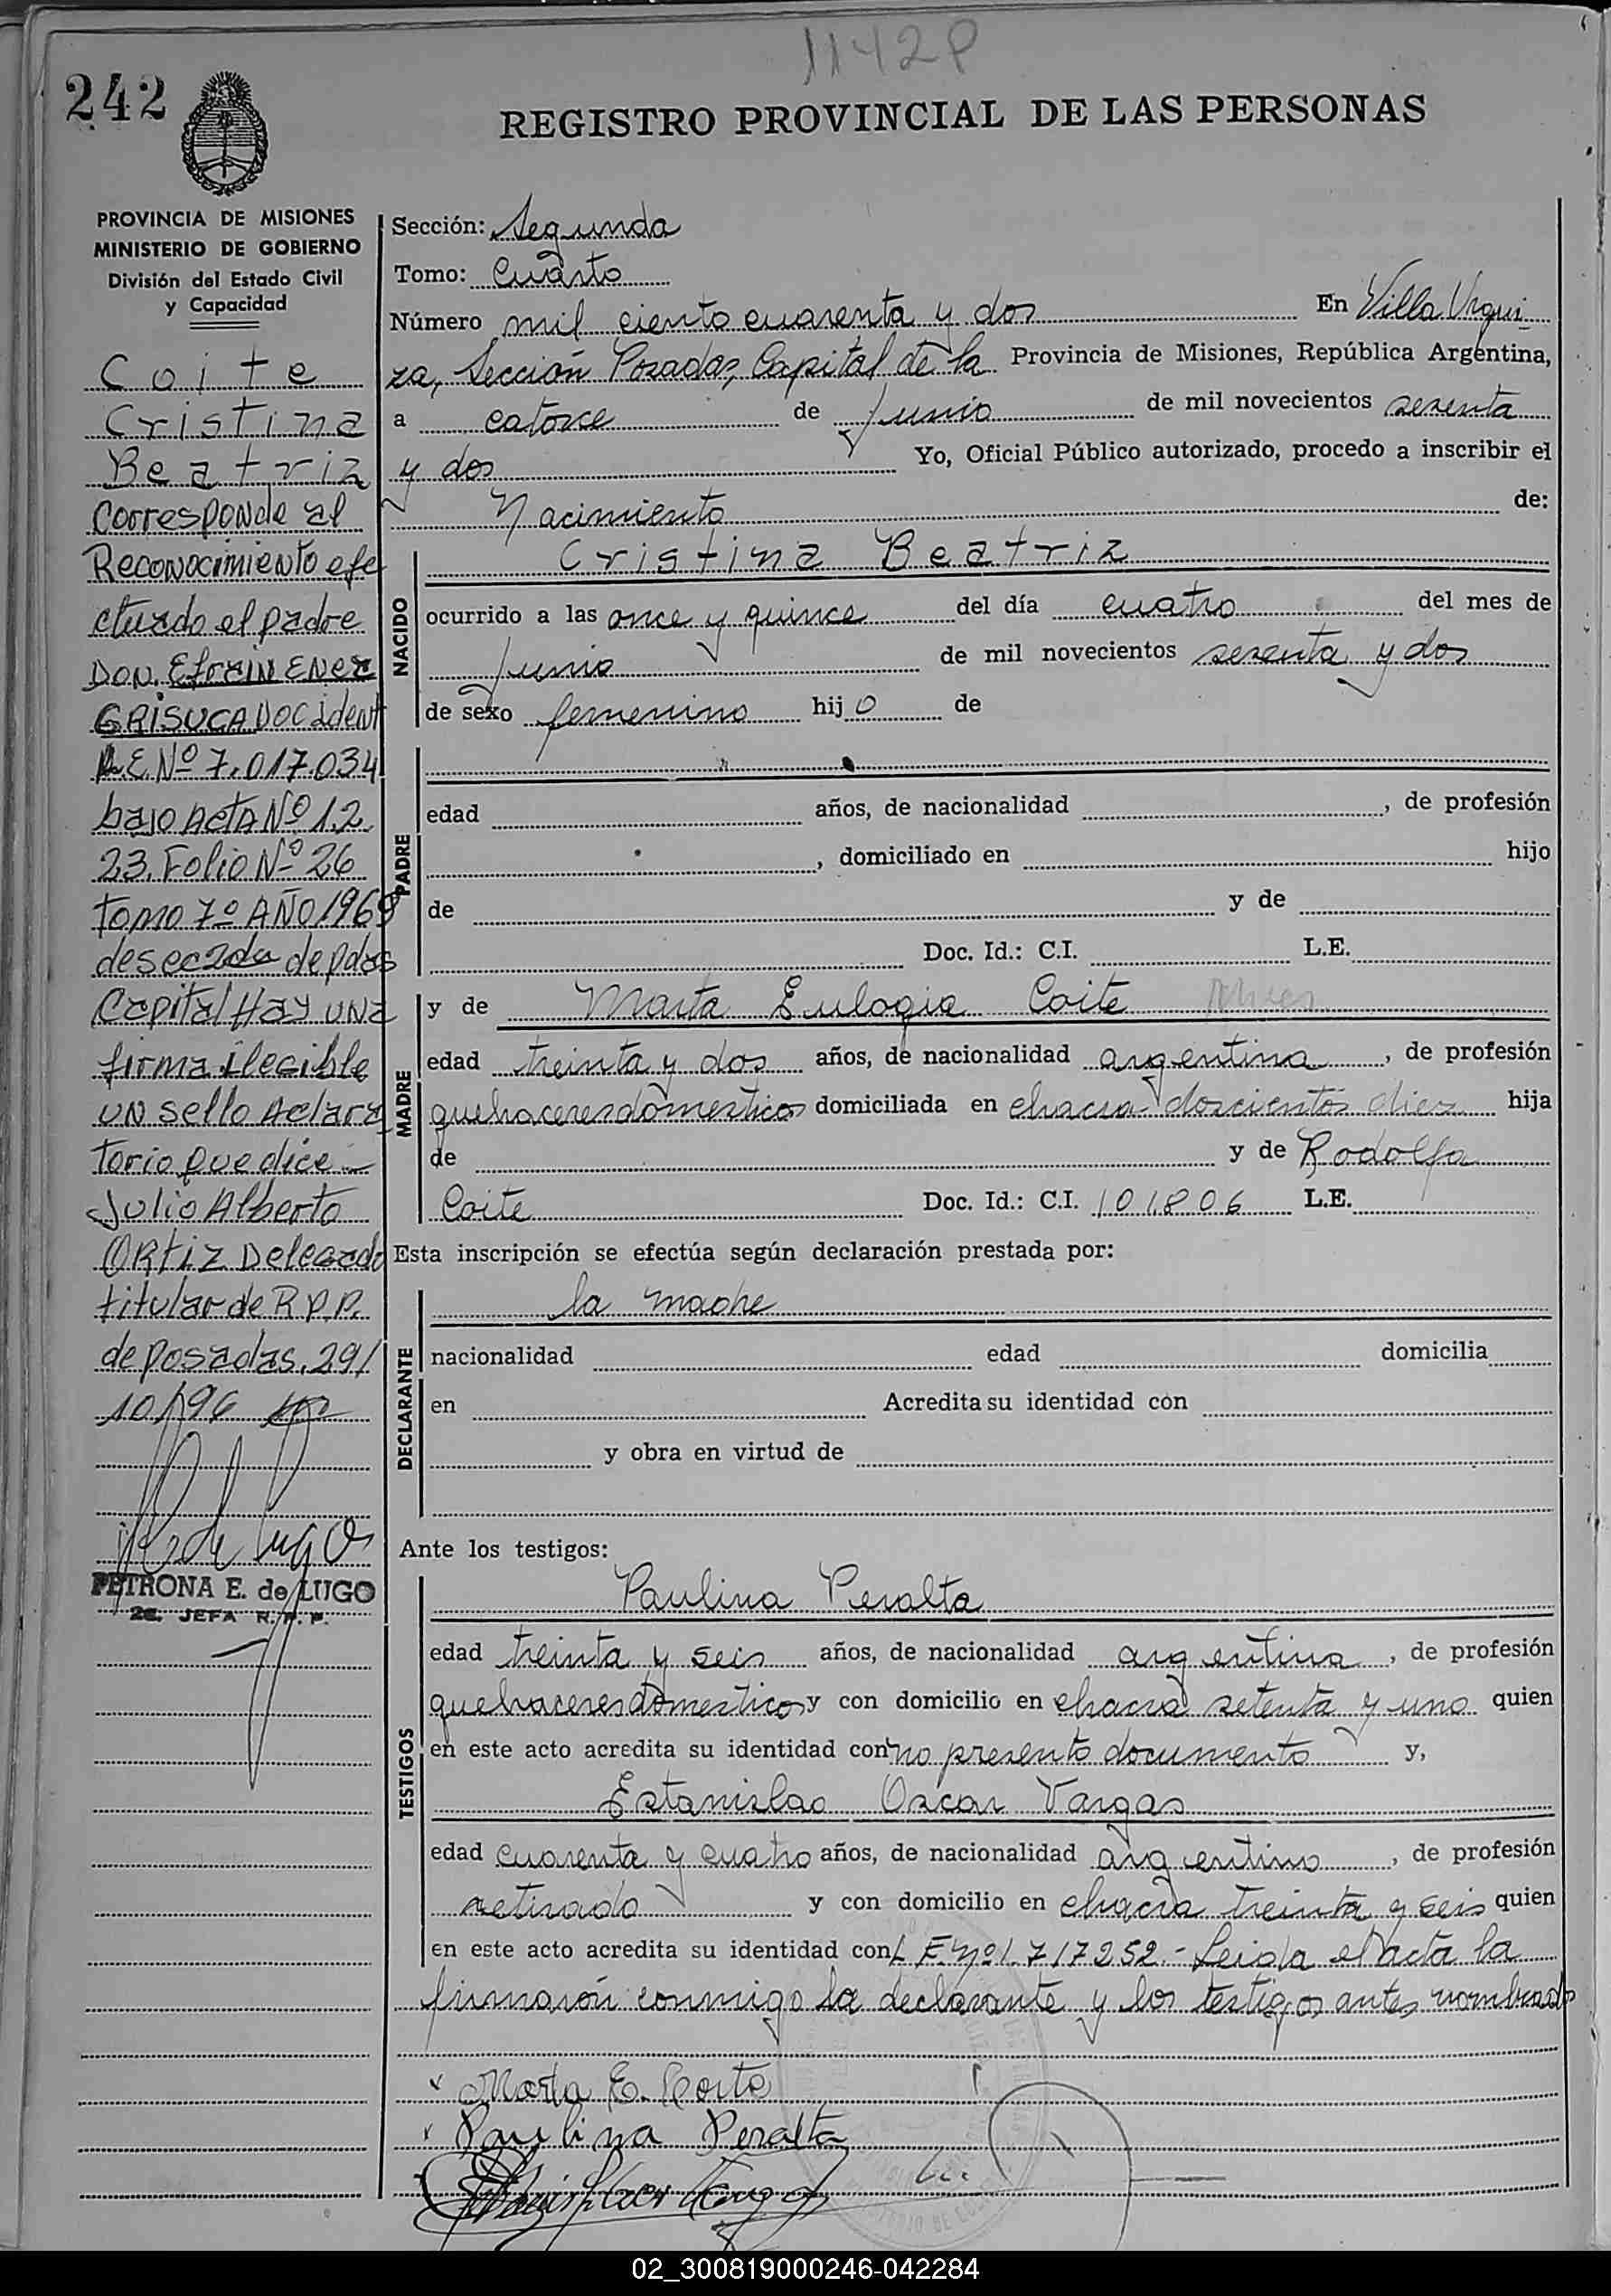 1142P
242
REGISTRO PROVINCIAL DE LAS PERSONAS
PROVINCIA DE MISIONES
MINISTERIO DE GOBIERNO
División del Estado Civil
y Capacidad
Coite
Cristina
Beatriz
Corresponde al
Reconocimiento efe
ctuado el padre
DON. Efrain ENEZ
GRISUCA DOC ident
L.E. Nº 7.017.034
bajo Acta Nº 12
23. Folio Nº 26
Tomo 7º AÑO 1969
de sec 2da de pdas
Capital Hay una
firma ilegible
un sello Aclara
torio que dice -
Julio Alberto
ORTIZ Delegado
titular de R.P.P.
de posadas. 29/
10/96
PETRONA E. de LUGO
2a. JEFA R.P.P.
Sección: Segunda
Tomo: Cuarto
Número mil ciento cuarenta y dos En Villa Urqui
za, Sección Posadas, Capital de la Provincia de Misiones, República Argentina,
a catorce de Junio de mil novecientos sesenta
y dos Yo, Oficial Público autorizado, procedo a inscribir el
Nacimiento de:
NACIDO
Cristina Beatriz
ocurrido a las once y quince del día cuatro del mes de
Junio de mil novecientos sesenta y dos
de sexo femenino hij o de
PADRE
edad años, de nacionalidad , de profesión
, domiciliado en hijo
de y de
Doc. Id.: C.I. L.E.
MADRE
y de Marta Eulogia Coite
edad treinta y dos años, de nacionalidad argentina , de profesión
quehaceres domesticos domiciliada en chacra doscientos diez hija
de y de Rodolfa
Coite Doc. Id.: C.I. 101.806 L.E.
Esta inscripción se efectúa según declaración prestada por:
DECLARANTE
la madre
nacionalidad edad domicilia
en Acredita su identidad con
y obra en virtud de
Ante los testigos:
TESTIGOS
Paulina Peralta
edad treinta y seis años, de nacionalidad argentina , de profesión
quehaceres domesticos y con domicilio en chacra setenta y uno quien
en este acto acredita su identidad con no presento documento y,
Estanislao Oscar Vargas
edad cuarenta y cuatro años, de nacionalidad argentino , de profesión
retirado y con domicilio en chacra treinta y seis quien
en este acto acredita su identidad con L.E. Nº 1.717252.- Leida el acta la
firmaron conmigo la declarante y los testigos antes nombrado
x Marta E. Coite
x Paulina Peralta
02_300819000246-042284